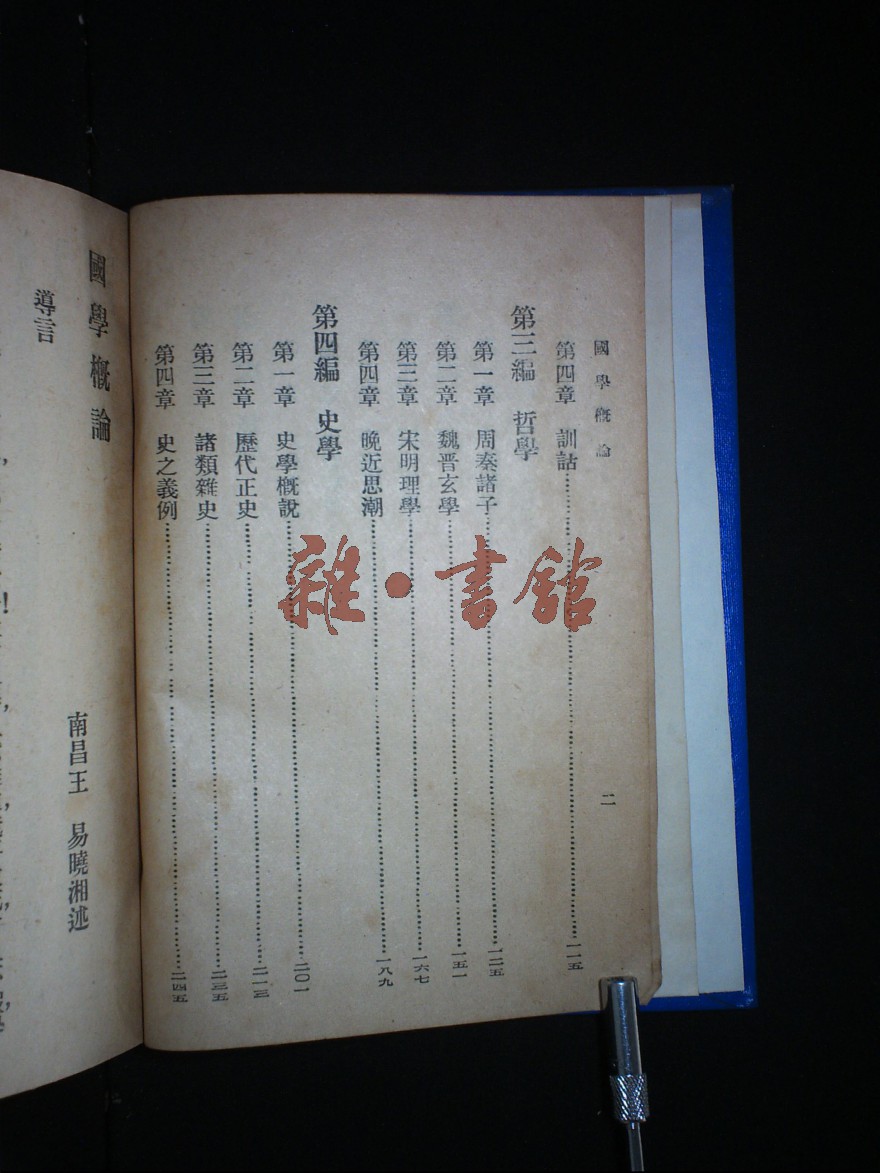 國學概論
二
第四章 訓詁……一一五
第三編 哲學
第一章 周秦諸子……一二五
第二章 魏晉玄學……一五一
第三章 宋明理學……一六七
第四章 晚近思潮……一八九
第四編 史學
第一章 史學概說……二〇一
第二章 歷代正史……二一三
第三章 諸類雜史……二三五
第四章 史之義例……二四五
國學概論
南昌王 易曉湘述
導言
雜·書館